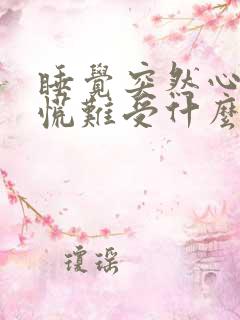 睡覺突然心
慌難受什麼
瓊瑤